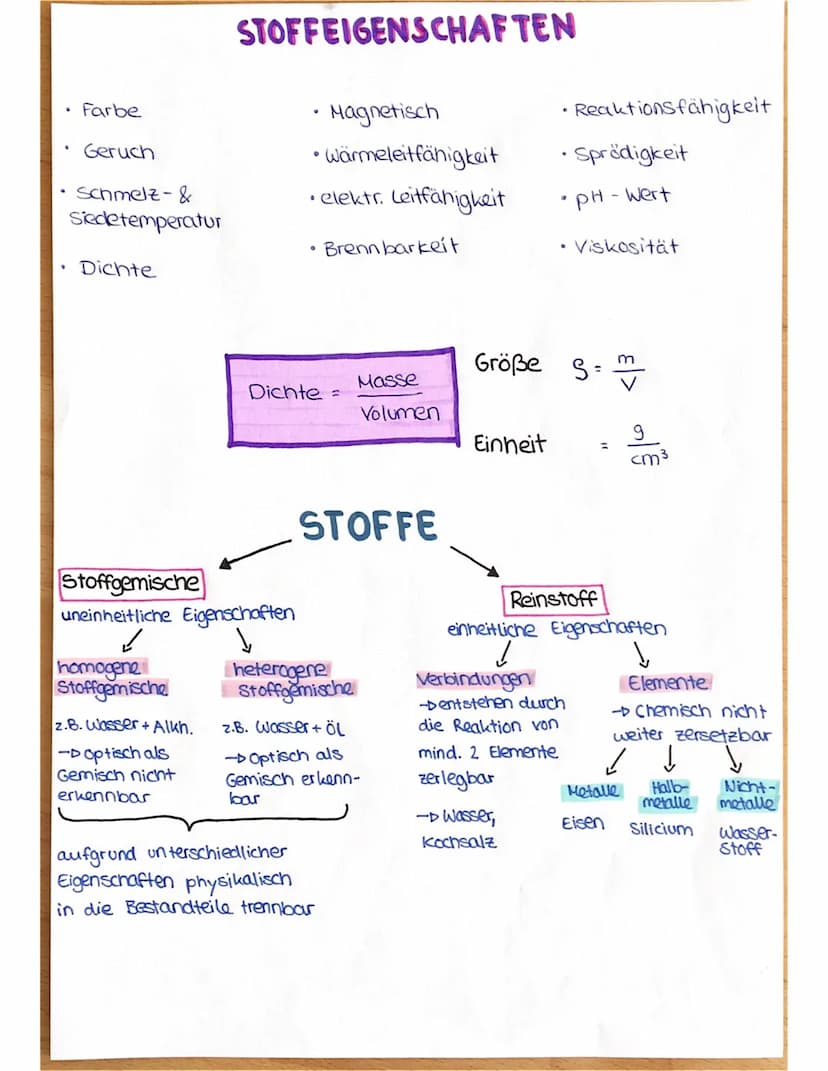 STOFFEIGENSCHAFTEN
• Farbe
• Geruch
• Schmelz- &
Siedetemperatur
• Dichte
• Magnetisch
• Wärmeleitfähigkeit
• elektr. Leitfähigkeit
• Brennbarkeit
• Reaktionsfähigkeit
• Sprödigkeit
• pH - Wert
• Viskosität
Dichte = Masse / Volumen
Größe ρ = m / V
Einheit = g / cm³
STOFFE
Stoffgemische
uneinheitliche Eigenschaften
homogene
Stoffgemische
z.B. Wasser + Alkh.
→ optisch als
Gemisch nicht
erkennbar
heterogene
Stoffgemische
z.B. Wasser + Öl
→ Optisch als
Gemisch erkenn-
bar
aufgrund unterschiedlicher
Eigenschaften physikalisch
in die Bestandteile trennbar
Reinstoff
einheitliche Eigenschaften
Verbindungen
→ entstehen durch
die Reaktion von
mind. 2 Elemente
zerlegbar
→ Wasser,
Kochsalz
Elemente
→ Chemisch nicht
weiter zersetzbar
Metalle
Eisen
Halb-
metalle
Silicium
Nicht-
metalle
Wasser-
stoff